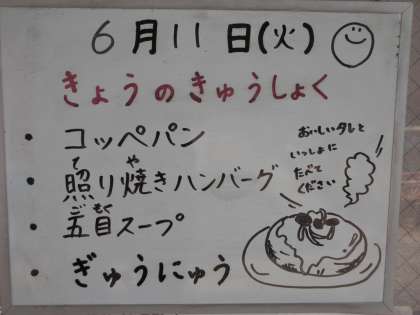 6月11日(火)
きょうのきゅうしょく
・コッペパン
・照り焼きハンバーグ
て や
・五目スープ
ご もく
・ぎゅうにゅう
おいしいタレと
いっしょに
たべて
ください